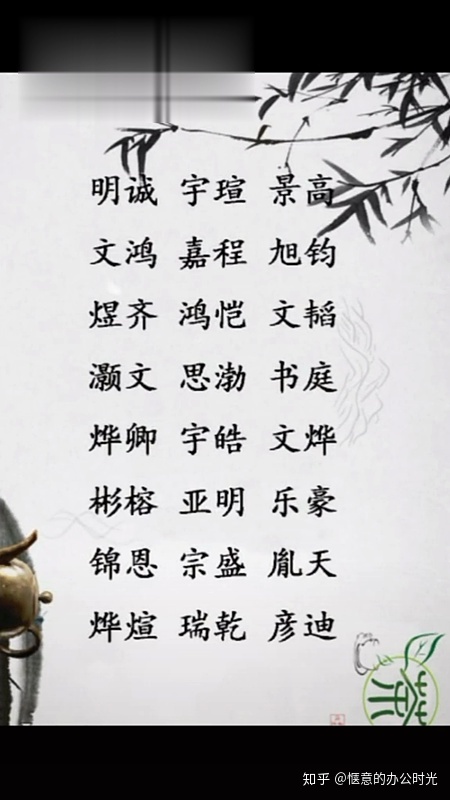 明诚 宇瑄 景高
文鸿 嘉程 旭钧
煜齐 鸿恺 文韬
灏文 思渤 书庭
烨卿 宇皓 文烨
彬榕 亚明 乐豪
锦恩 宗盛 胤天
烨煊 瑞乾 彦迪
茶
知乎 @惬意的办公时光